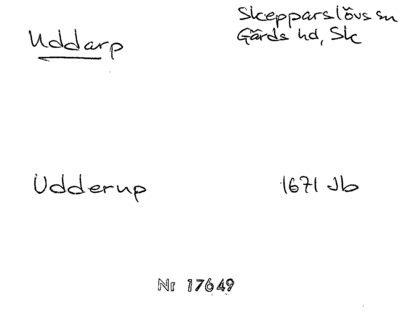 Uddarp
Skepparslövs sn
Gärds hd, Sk
Udderup
1671 Jb
Nr 17649